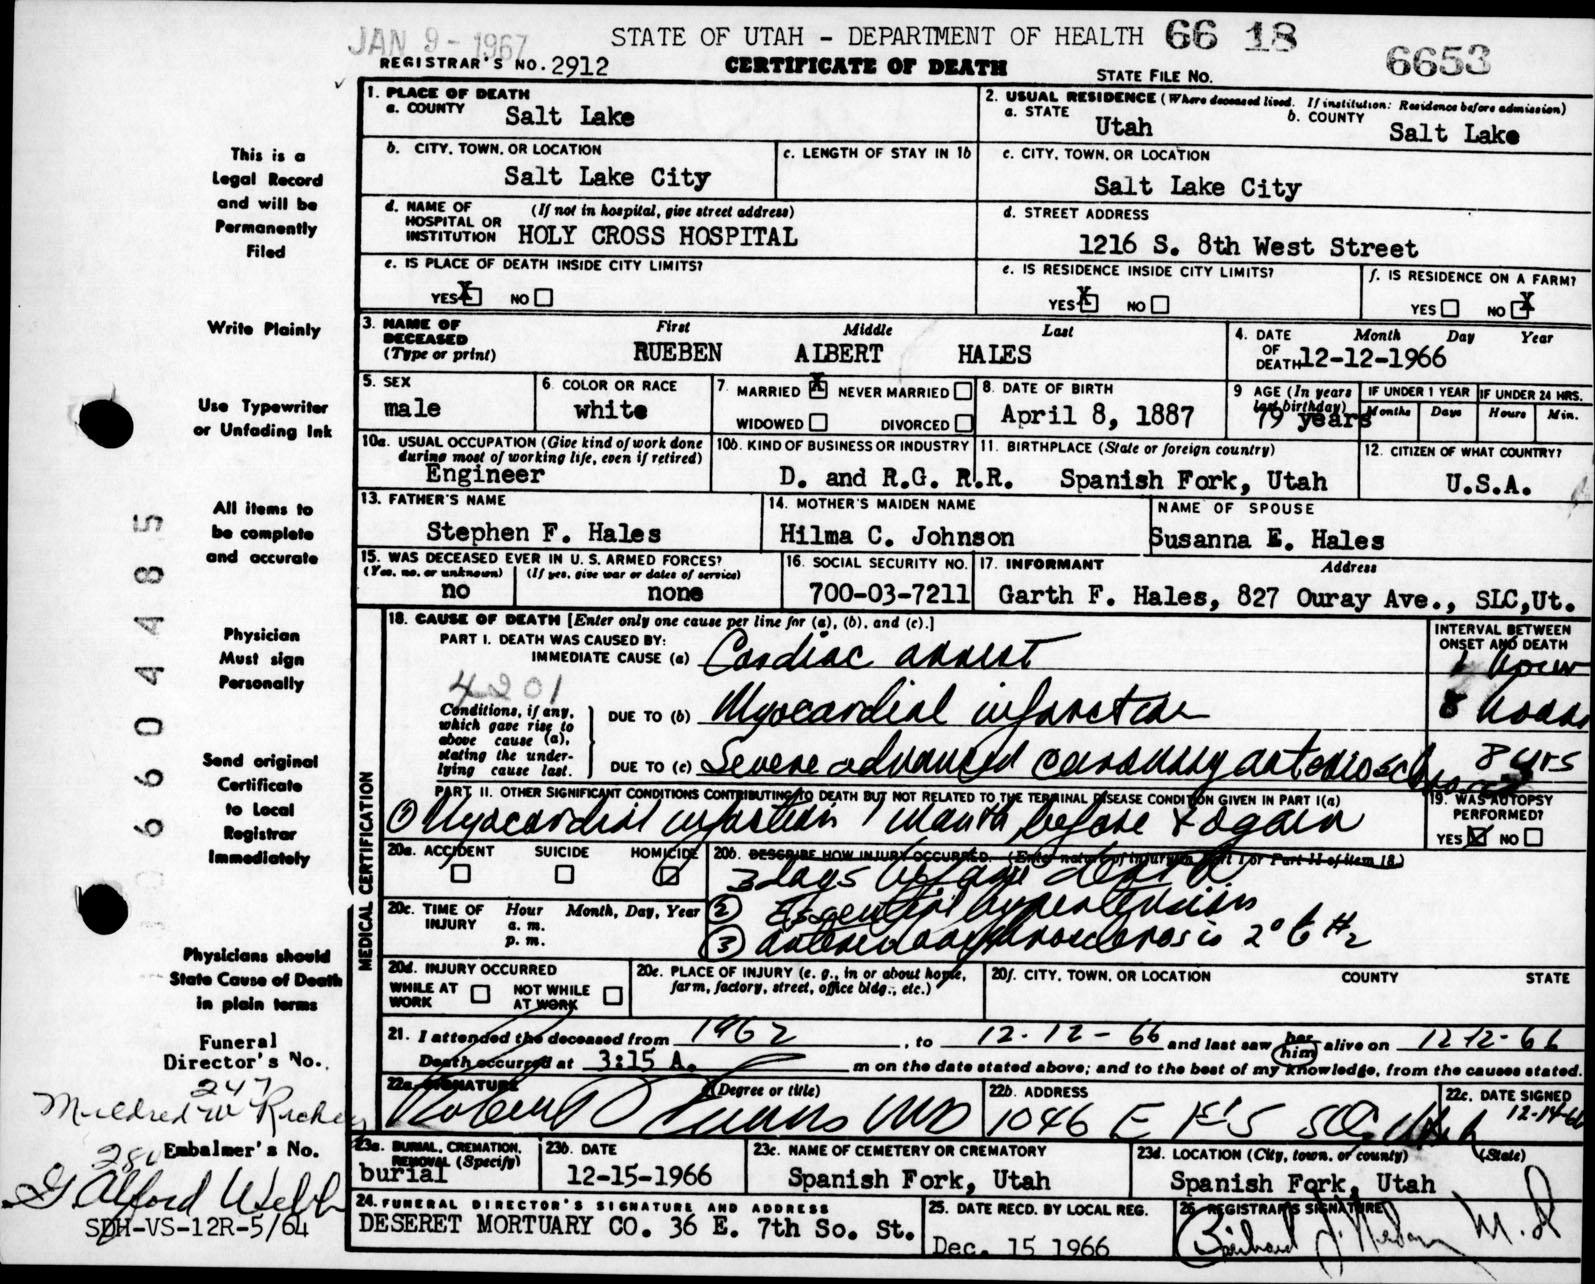 JAN 9 - 1967
STATE OF UTAH - DEPARTMENT OF HEALTH 66 18
6653
REGISTRAR'S NO. 2912
CERTIFICATE OF DEATH
STATE FILE NO.
1. PLACE OF DEATH
a. COUNTY Salt Lake
2. USUAL RESIDENCE (Where deceased lived. If institution: Residence before admission)
a. STATE Utah
b. COUNTY Salt Lake
b. CITY, TOWN, OR LOCATION
Salt Lake City
c. LENGTH OF STAY IN 1b
c. CITY, TOWN, OR LOCATION
Salt Lake City
d. NAME OF HOSPITAL OR INSTITUTION (If not in hospital, give street address)
HOLY CROSS HOSPITAL
d. STREET ADDRESS
1216 S. 8th West Street
e. IS PLACE OF DEATH INSIDE CITY LIMITS?
YES X NO
e. IS RESIDENCE INSIDE CITY LIMITS?
YES X NO
f. IS RESIDENCE ON A FARM?
YES NO X
3. NAME OF DECEASED (Type or print)
First Middle Last
RUEBEN ALBERT HALES
4. DATE OF DEATH Month Day Year
12-12-1966
5. SEX
male
6. COLOR OR RACE
white
7. MARRIED X NEVER MARRIED
WIDOWED DIVORCED
8. DATE OF BIRTH
April 8, 1887
9 AGE (In years last birthday)
79 years
IF UNDER 1 YEAR
Months Days
IF UNDER 24 HRS.
Hours Min.
10a. USUAL OCCUPATION (Give kind of work done during most of working life, even if retired)
Engineer
10b. KIND OF BUSINESS OR INDUSTRY
D. and R.G. R.R.
11. BIRTHPLACE (State or foreign country)
Spanish Fork, Utah
12. CITIZEN OF WHAT COUNTRY?
U.S.A.
13. FATHER'S NAME
Stephen F. Hales
14. MOTHER'S MAIDEN NAME
Hilma C. Johnson
NAME OF SPOUSE
Susanna E. Hales
15. WAS DECEASED EVER IN U.S. ARMED FORCES?
(Yes, no, or unknown) (If yes, give war or dates of service)
no none
16. SOCIAL SECURITY NO.
700-03-7211
17. INFORMANT Address
Garth F. Hales, 827 Ouray Ave., SLC,Ut.
MEDICAL CERTIFICATION
18. CAUSE OF DEATH [Enter only one cause per line for (a), (b), and (c).]
PART I. DEATH WAS CAUSED BY:
IMMEDIATE CAUSE (a) Cardiac arrest
INTERVAL BETWEEN ONSET AND DEATH
1 hour
4201
Conditions, if any, which gave rise to above cause (a), stating the underlying cause last.
DUE TO (b) Myocardial infarction
8 hours
DUE TO (c) Severe advanced coronary arteriosclerosis
8 yrs
PART II. OTHER SIGNIFICANT CONDITIONS CONTRIBUTING TO DEATH BUT NOT RELATED TO THE TERMINAL DISEASE CONDITION GIVEN IN PART I(a)
① Myocardial infarction 1 month before & again
3 days before death
② Essential hypertension
19. WAS AUTOPSY PERFORMED?
YES X NO
20a. ACCIDENT SUICIDE HOMICIDE
20b. DESCRIBE HOW INJURY OCCURRED. (Enter nature of injury in Part I or Part II of item 18.)
20c. TIME OF INJURY Hour Month, Day, Year
a. m.
p. m.
③ 2° to #2
20d. INJURY OCCURRED
WHILE AT WORK NOT WHILE AT WORK
20e. PLACE OF INJURY (e. g., in or about home, farm, factory, street, office bldg., etc.)
20f. CITY, TOWN, OR LOCATION COUNTY STATE
21. I attended the deceased from 1962, to 12-12-66 and last saw her him alive on 12-12-66
Death occurred at 3:15 A. m on the date stated above; and to the best of my knowledge, from the causes stated.
22a. SIGNATURE (Degree or title)
Robert MD
22b. ADDRESS
1046 E 1st S SLC, Utah
22c. DATE SIGNED
12-14-66
23a. BURIAL, CREMATION, REMOVAL (Specify)
burial
23b. DATE
12-15-1966
23c. NAME OF CEMETERY OR CREMATORY
Spanish Fork, Utah
23d. LOCATION (City, town, or county) (State)
Spanish Fork, Utah
24. FUNERAL DIRECTOR'S SIGNATURE AND ADDRESS
DESERET MORTUARY CO. 36 E. 7th So. St.
25. DATE RECD. BY LOCAL REG.
Dec. 15 1966
26. REGISTRAR'S SIGNATURE
M.D.
This is a
Legal Record
and will be
Permanently
Filed
Write Plainly
Use Typewriter
or Unfading Ink
All items to
be complete
and accurate
Physician
Must sign
Personally
Send original
Certificate
to Local
Registrar
Immediately
Physicians should
State Cause of Death
in plain terms
Funeral
Director's No.
247
Mildred W Richey
Embalmer's No.
280
G Alford Webb
SDH-VS-12R-5/64
06604485